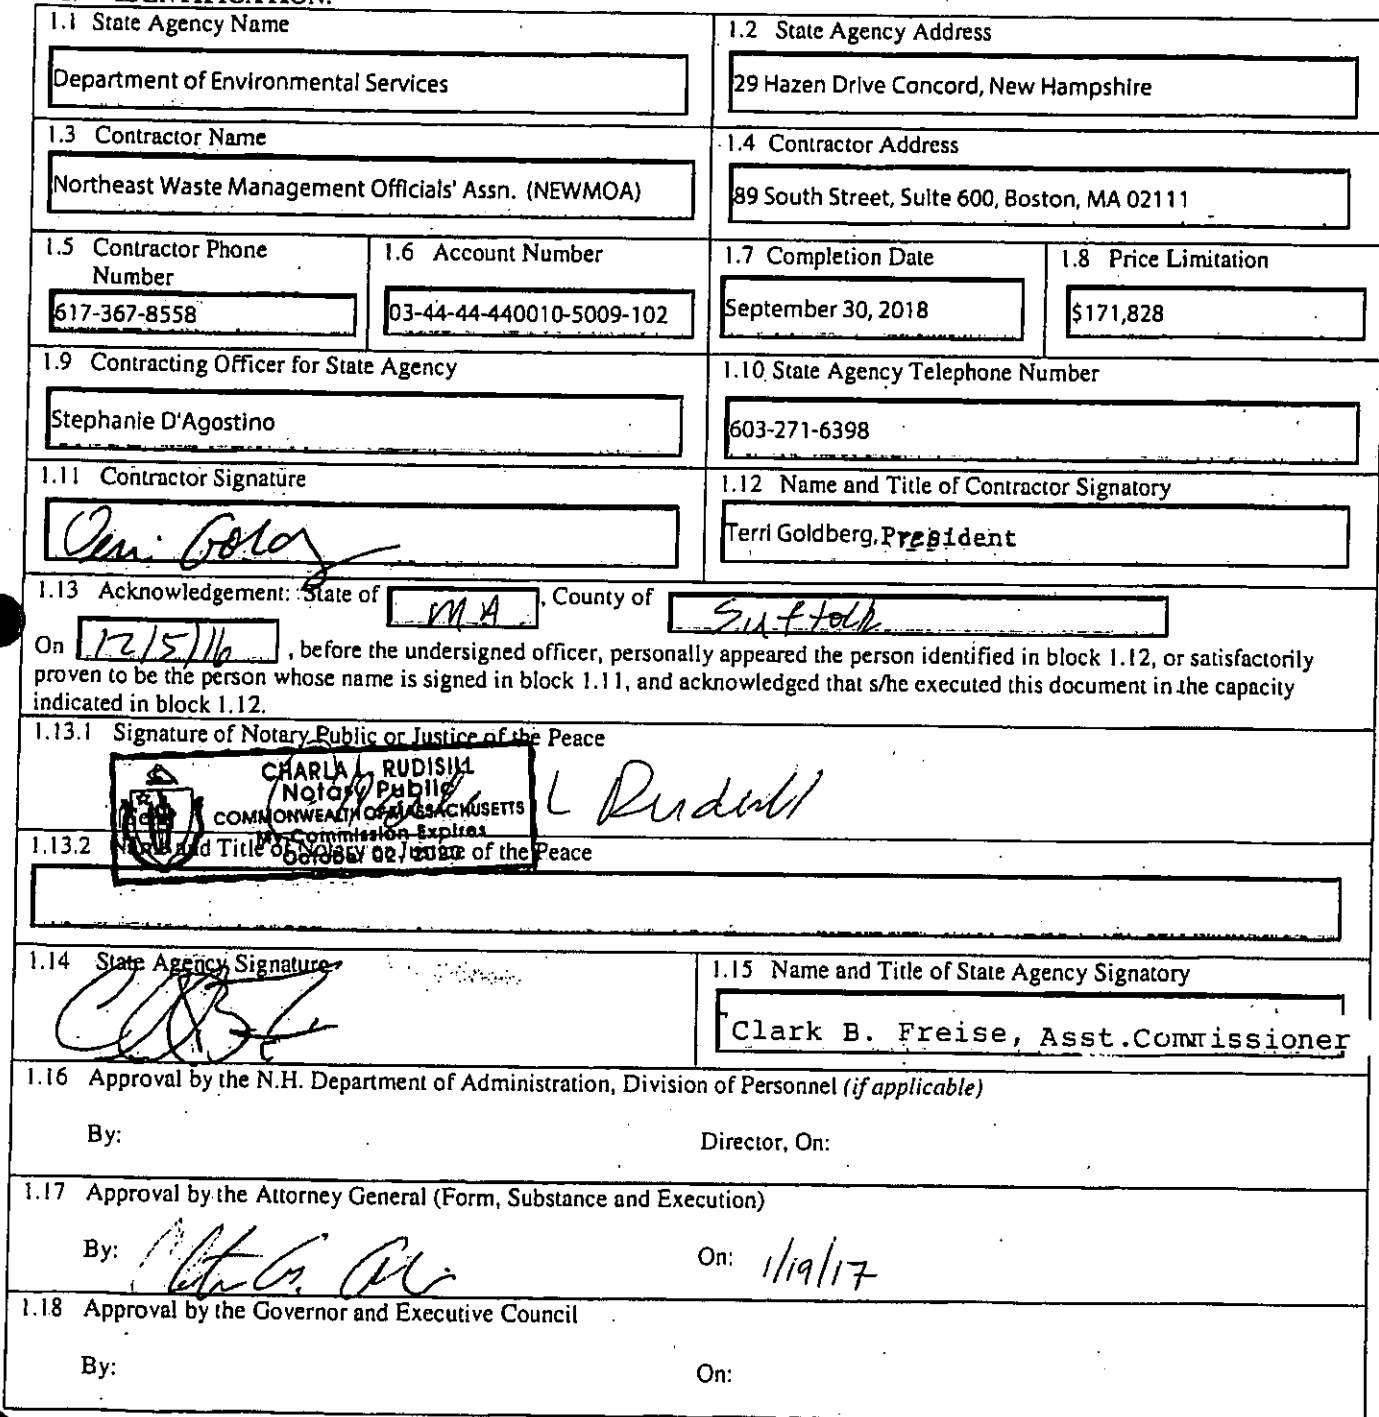 IDENTIFICATION.
1.1 State Agency Name
Department of Environmental Services
1.2 State Agency Address
29 Hazen Drive Concord, New Hampshire
1.3 Contractor Name
Northeast Waste Management Officials' Assn. (NEWMOA)
1.4 Contractor Address
89 South Street, Suite 600, Boston, MA 02111
1.5 Contractor Phone
Number
617-367-8558
1.6 Account Number
03-44-44-440010-5009-102
1.7 Completion Date
September 30, 2018
1.8 Price Limitation
$171,828
1.9 Contracting Officer for State Agency
Stephanie D'Agostino
1.10 State Agency Telephone Number
603-271-6398
1.11 Contractor Signature
1.12 Name and Title of Contractor Signatory
Terri Goldberg, President
1.13 Acknowledgement: State of MA, County of Suffolk
On 12/5/16, before the undersigned officer, personally appeared the person identified in block 1.12, or satisfactorily
proven to be the person whose name is signed in block 1.11, and acknowledged that s/he executed this document in the capacity
indicated in block 1.12.
1.13.1 Signature of Notary Public or Justice of the Peace
CHARLA L. RUDISILL
Notary Public
COMMONWEALTH OF MASSACHUSETTS
My Commission Expires
October 02, 2020
L Rudisill
1.13.2 Name and Title of Notary or Justice of the Peace
1.14 State Agency Signature
1.15 Name and Title of State Agency Signatory
Clark B. Freise, Asst.Commissioner
1.16 Approval by the N.H. Department of Administration, Division of Personnel (if applicable)
By:
Director, On:
1.17 Approval by the Attorney General (Form, Substance and Execution)
By:
On: 1/19/17
1.18 Approval by the Governor and Executive Council
By:
On: